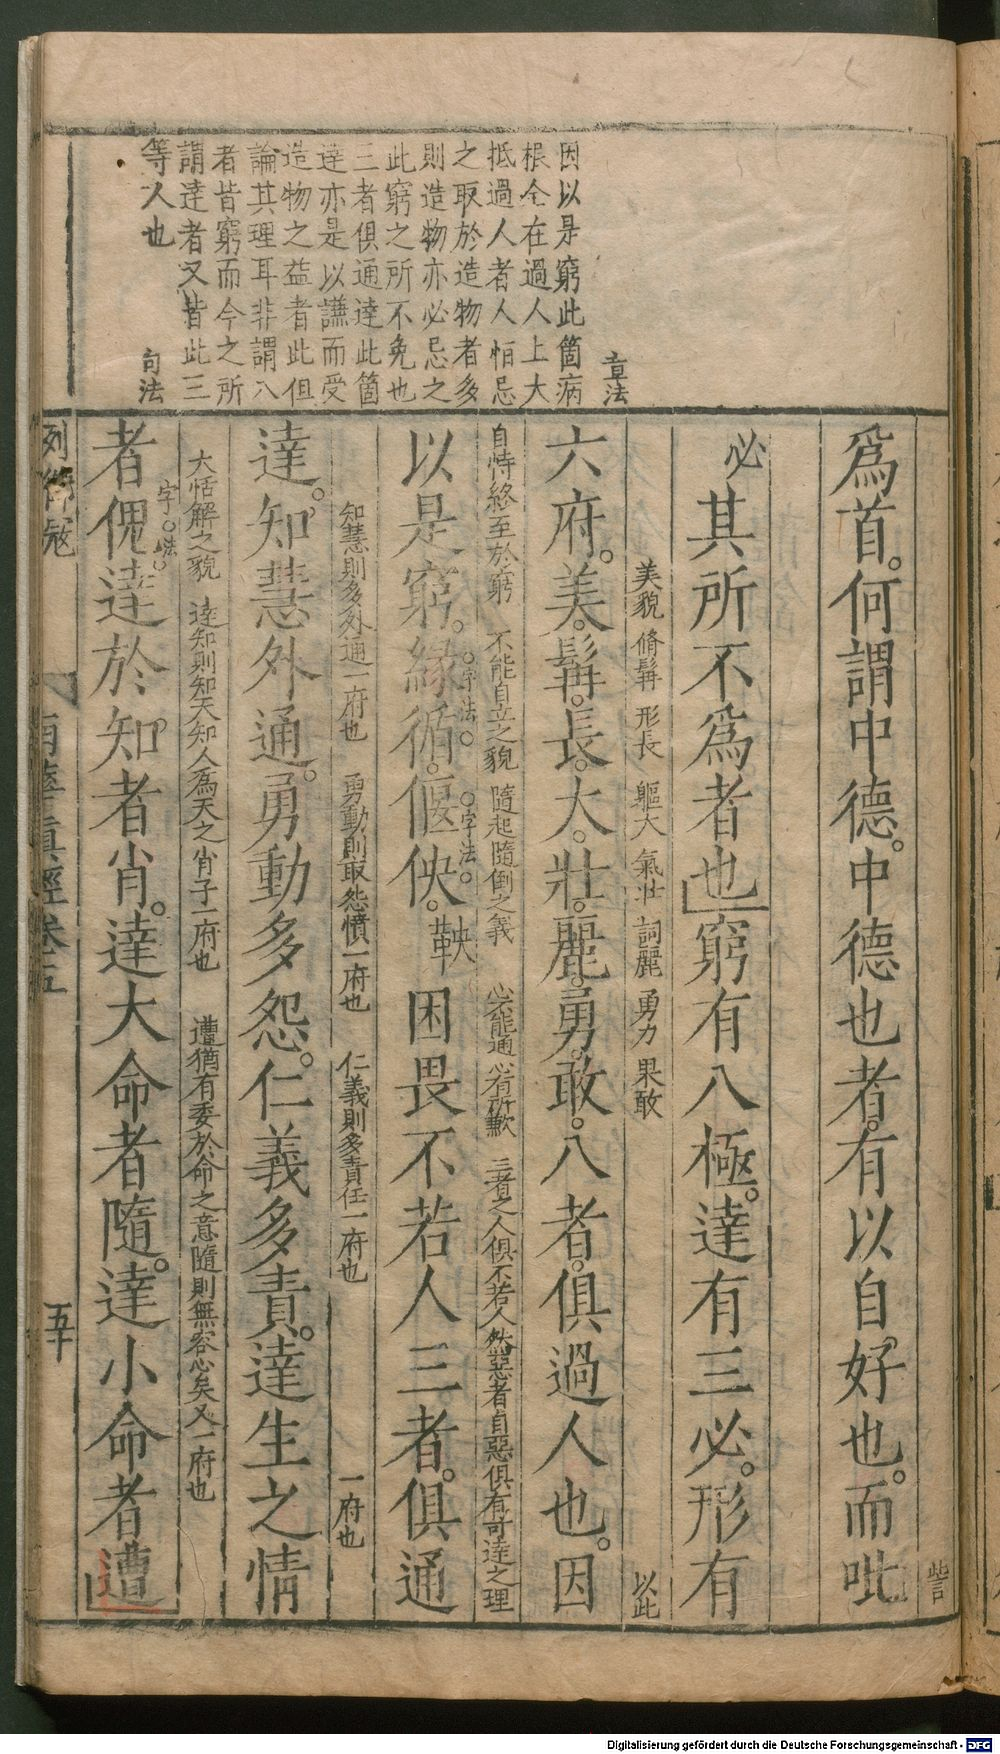 章法
因以是窮此箇病
根全在過人上大
抵過人者人怕忌
之取於造物者多
則造物亦必忌之
此窮之所不免也
三者俱通達此箇
達亦是以謙而受
造物之益者此但
論其理耳非謂八
者皆窮而今之所
謂達者又皆此三
等人也
句法
訾
爲首。何謂中德。中德也者。有以自好也。而吡
必其所不爲者也窮有八極。達有三必。形有
美貌 脩髯 形長 軀大 氣壯 詞麗 勇力 果敢 以此
六府。美。髯。長。大。壯。麗。勇。敢。八者。俱過人也。因
自恃終至於窮 不能自立之貌 隨起隨倒之義 心不能通心有所歉 三者之人俱不若人然惡者貞惡俱有可達之理
以是窮。緣循。偃佒。䩕困畏不若人三者。俱通
○字法○
○字法○
知慧則多外通一府也 勇動則取怨憤一府也 仁義則多責任一府也 一府也
達。知慧外通。勇動多怨。仁義多責。達生之情
大恬解之貌 達知則知天知人爲天之肖子一府也 遭猶有委於命之意隨則無容心矣又一府也
字○法○
者傀達於知者肖。達大命者隨。達小命者遭
列御寇
南華真經卷五
五十
Digitalisierung gefördert durch die Deutsche Forschungsgemeinschaft - DFG